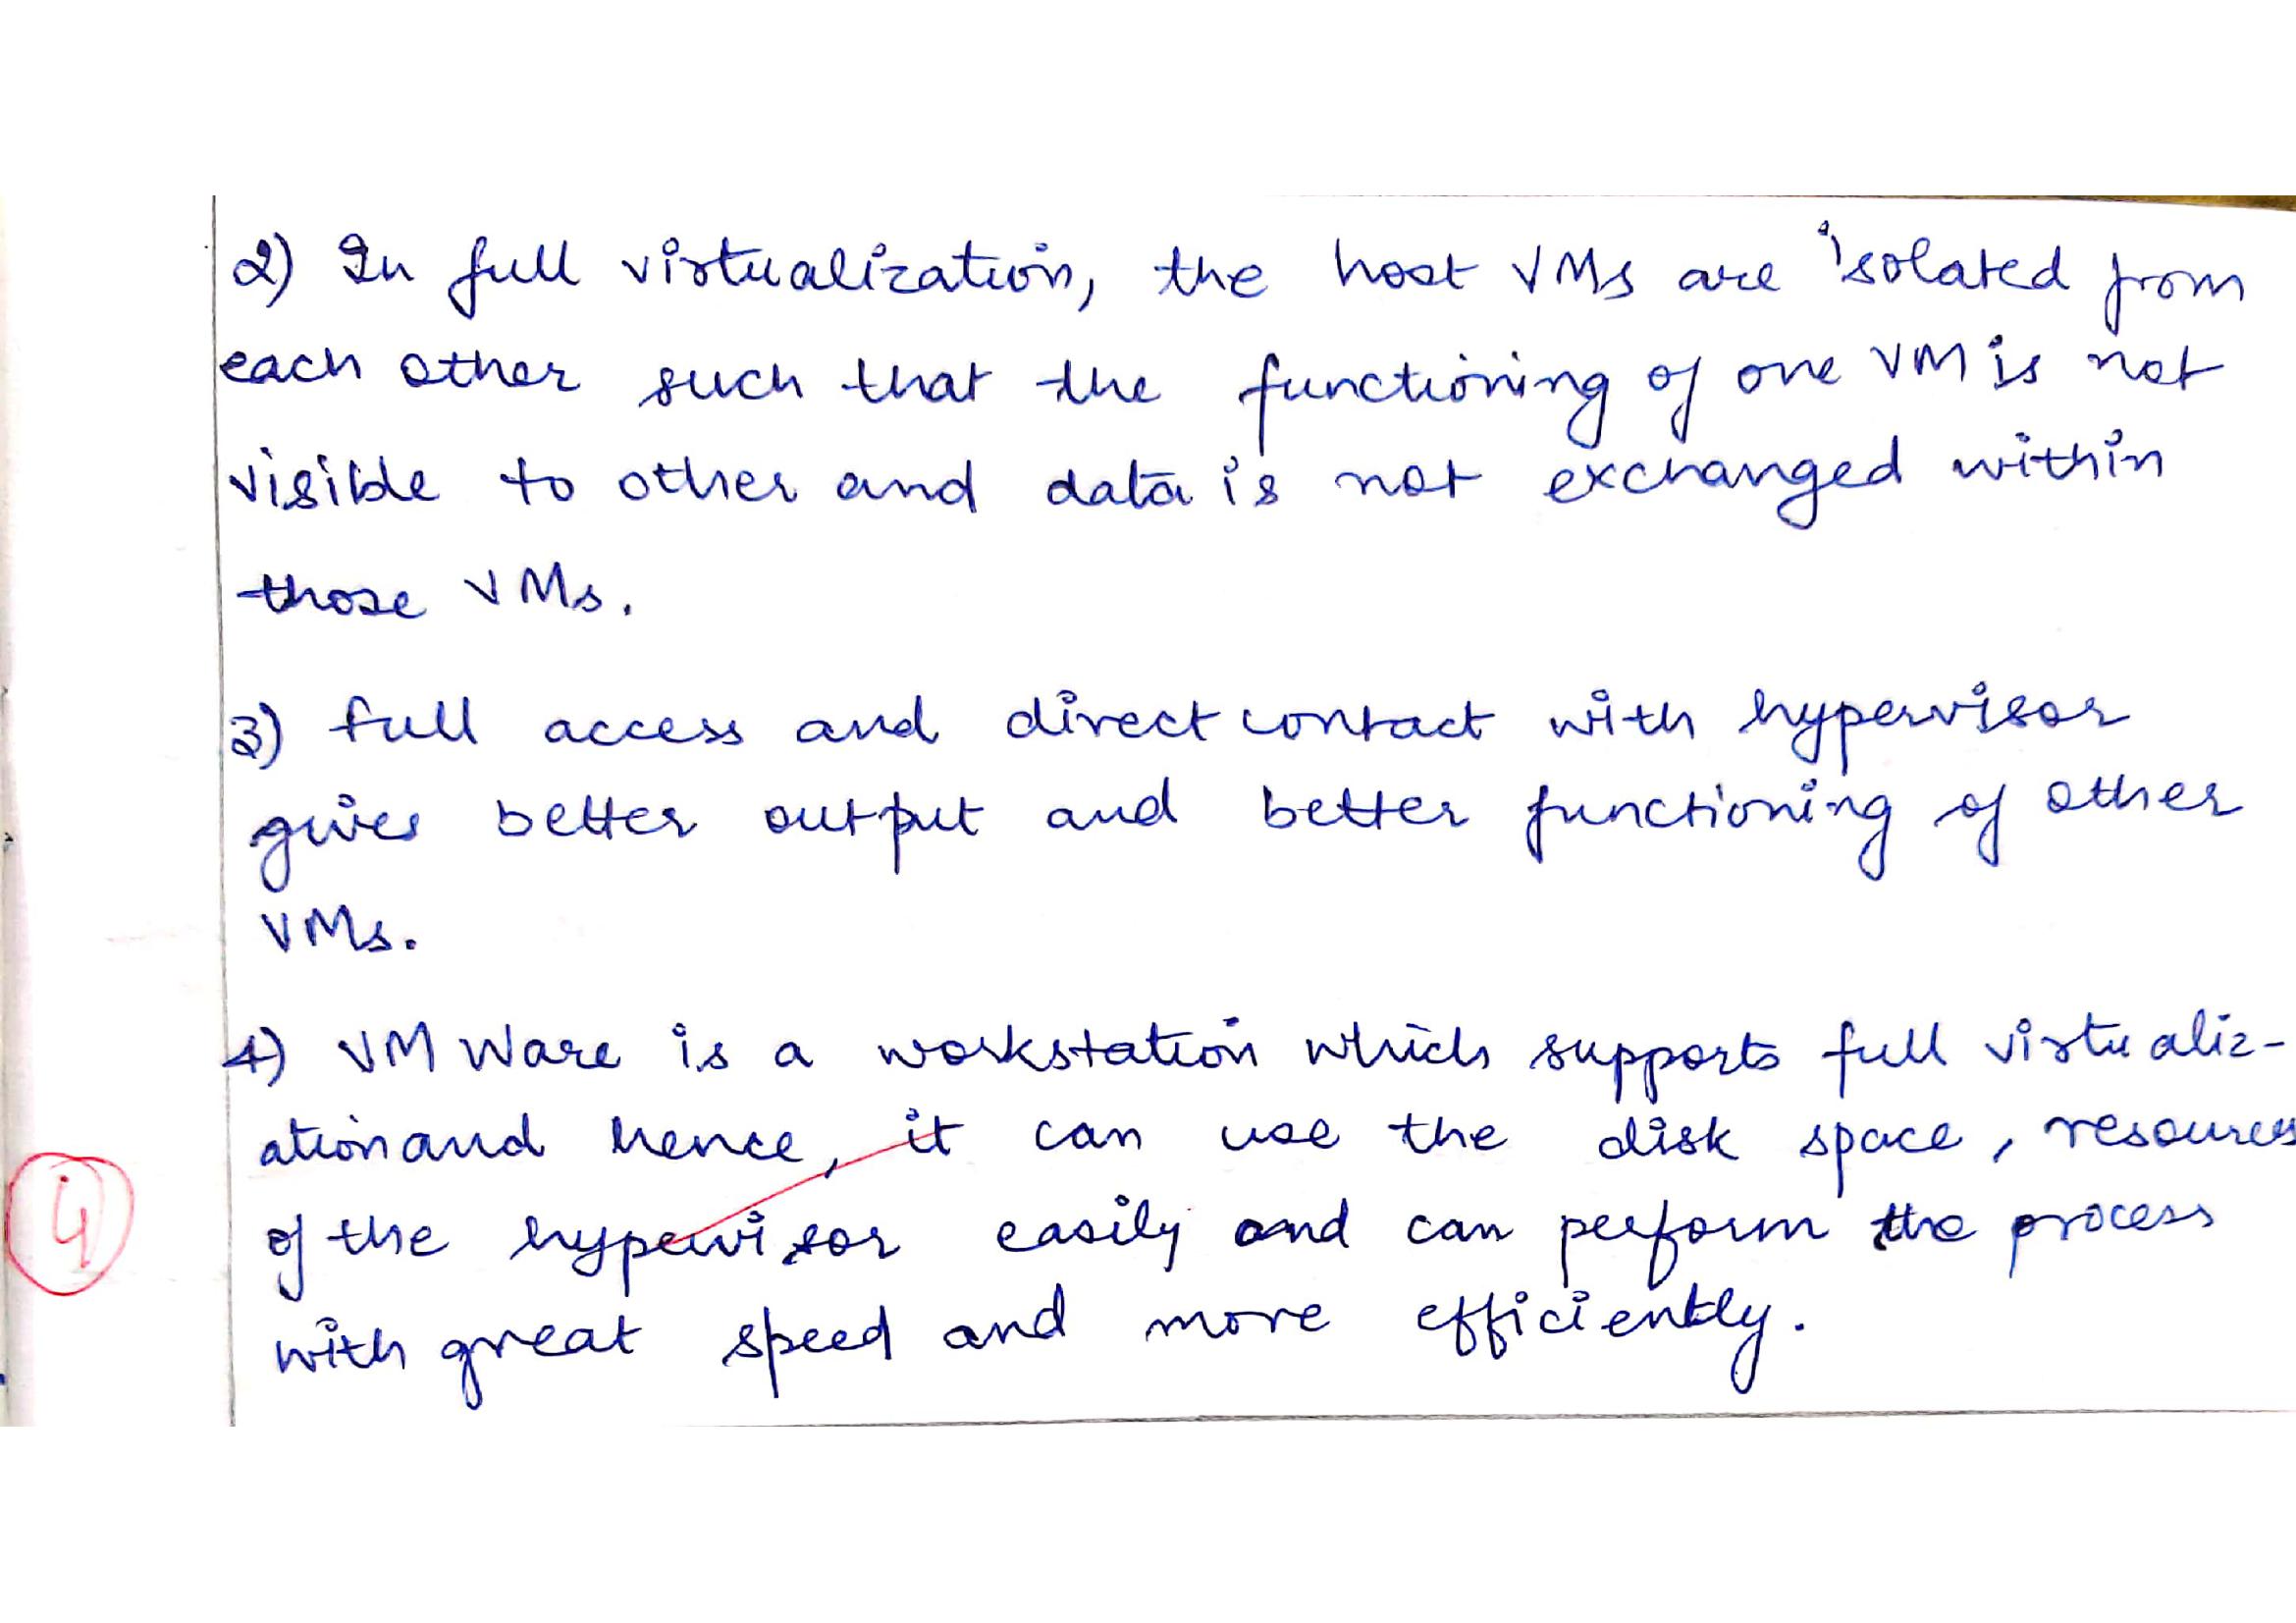 2) In full virtualization, the host VMs are isolated from
each other such that the functioning of one VM is not
visible to other and data is not exchanged within
those VMs.
3) full access and direct contact with hypervisor
gives better output and better functioning of other
VMs.
4) VM Ware is a workstation which supports full virtualiz-
ation and hence, it can use the disk space, resources
of the hypervisor easily and can perform the process
4
with great speed and more efficiently.